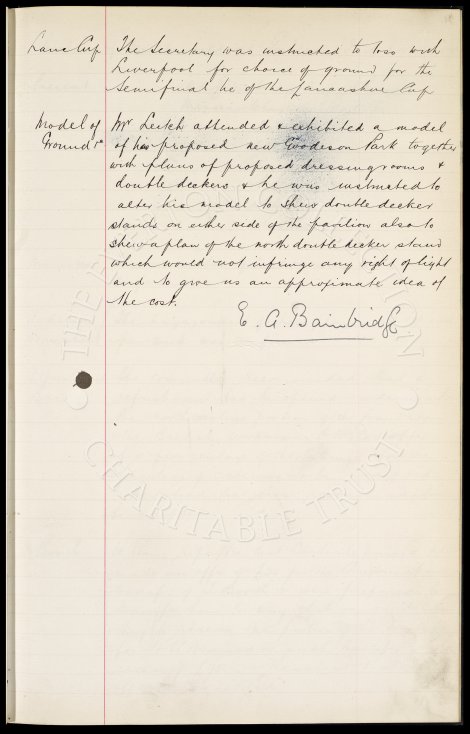 Lanc Cup The Secretary was instructed to toss with
Liverpool for choice of ground for the
Semifinal tie of the Lancashire Cup
Model of Mr Leitch attended & exhibited a model
Ground &c of his proposed new Goodison Park together
with plans of proposed dressing rooms &
double deckers & he was instructed to
alter his model to shew double decker
stands on either side of the pavilion also to
shew a plan of the north double decker stand
which would not infringe any right of light
and to give us an approximate idea of
the cost.
E. A. Bainbridge
THE COLLECTION
CHARITABLE TRUST